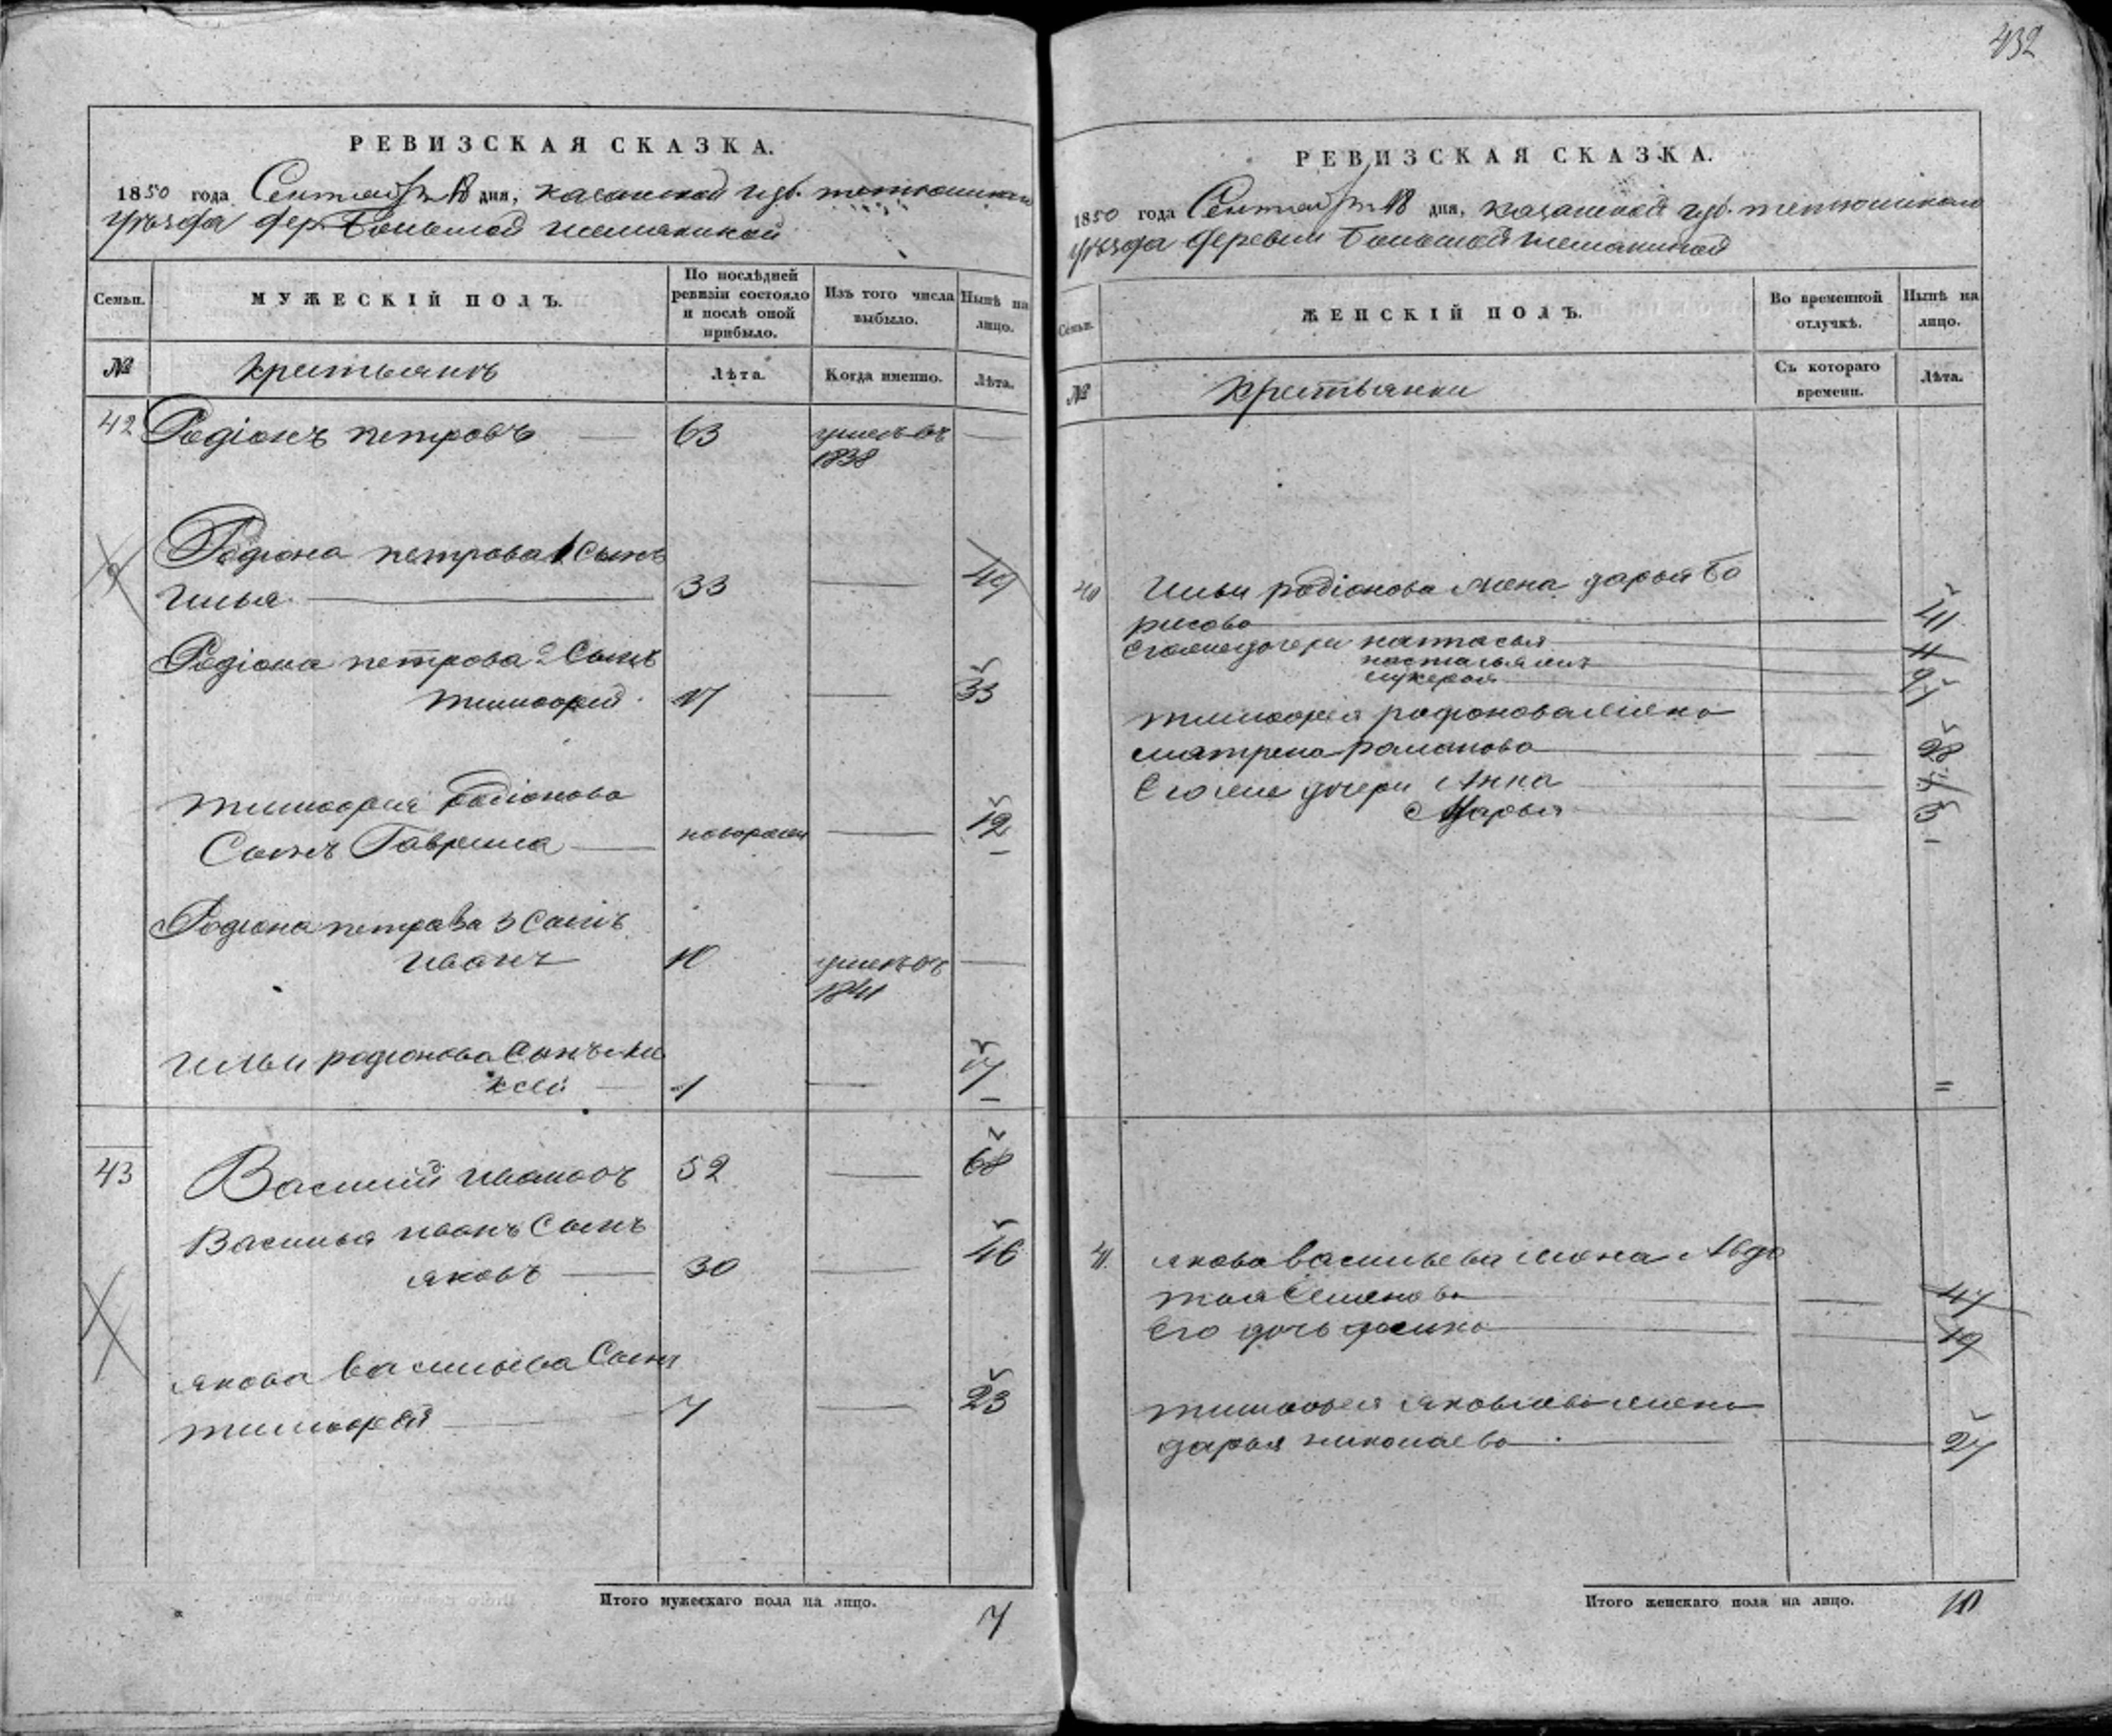 432
РЕВИЗСКАЯ СКАЗКА.
1850 года Сентября 18 дня, казанской губ. тетюшскаго
уѣзда дер. Большой шемякиной
Семьи.
МУЖЕСКІЙ ПОЛЪ.
По послѣдней ревизіи состояло и послѣ оной прибыло.
Изъ того числа выбыло.
Нынѣ на лицо.
№
крестьянъ
Лѣта.
Когда именно.
Лѣта.
42 Родіонъ петровъ 63 умеръ въ
1838
Родіона петрова 1 сынъ
Илья 33 49
Родіона петрова 2 Сынъ
тимофей 17 33
тимофея родіонова
Сынъ Гаврила новорожен 12
Родіона петрова 3 Сынъ
иванъ 10 умеръ въ
1841
Ильи родіонова Сынъ але
ксей 1 17
43 Василий ивановъ 52 68
Василья иванъ Сынъ
яковъ 30 46
якова васильева Сынъ
тимофей 7 23
Итого мужескаго пола на лицо. 7
РЕВИЗСКАЯ СКАЗКА.
1850 года Сентября 18 дня, казанской губ. тетюшскаго
уѣзда деревни Большой шемякиной
Семьи.
ЖЕНСКІЙ ПОЛЪ.
Во временной отлучкѣ.
Нынѣ на лицо.
№
крестьянки
Съ котораго времени.
Лѣта.
40 Ильи родіонова жена дарья Бо
рисова 41
Его же дочери настасья 11
настасья
лукерья
тимофея родіонова жена
матрена романова 28
Его же дочери Анна
Марья 3
41. якова васильева жена Авдо
тья Семенова 47
Его дочь 19
тимофея яковлева жена
дарья николаева 27
Итого женскаго пола на лицо. 10